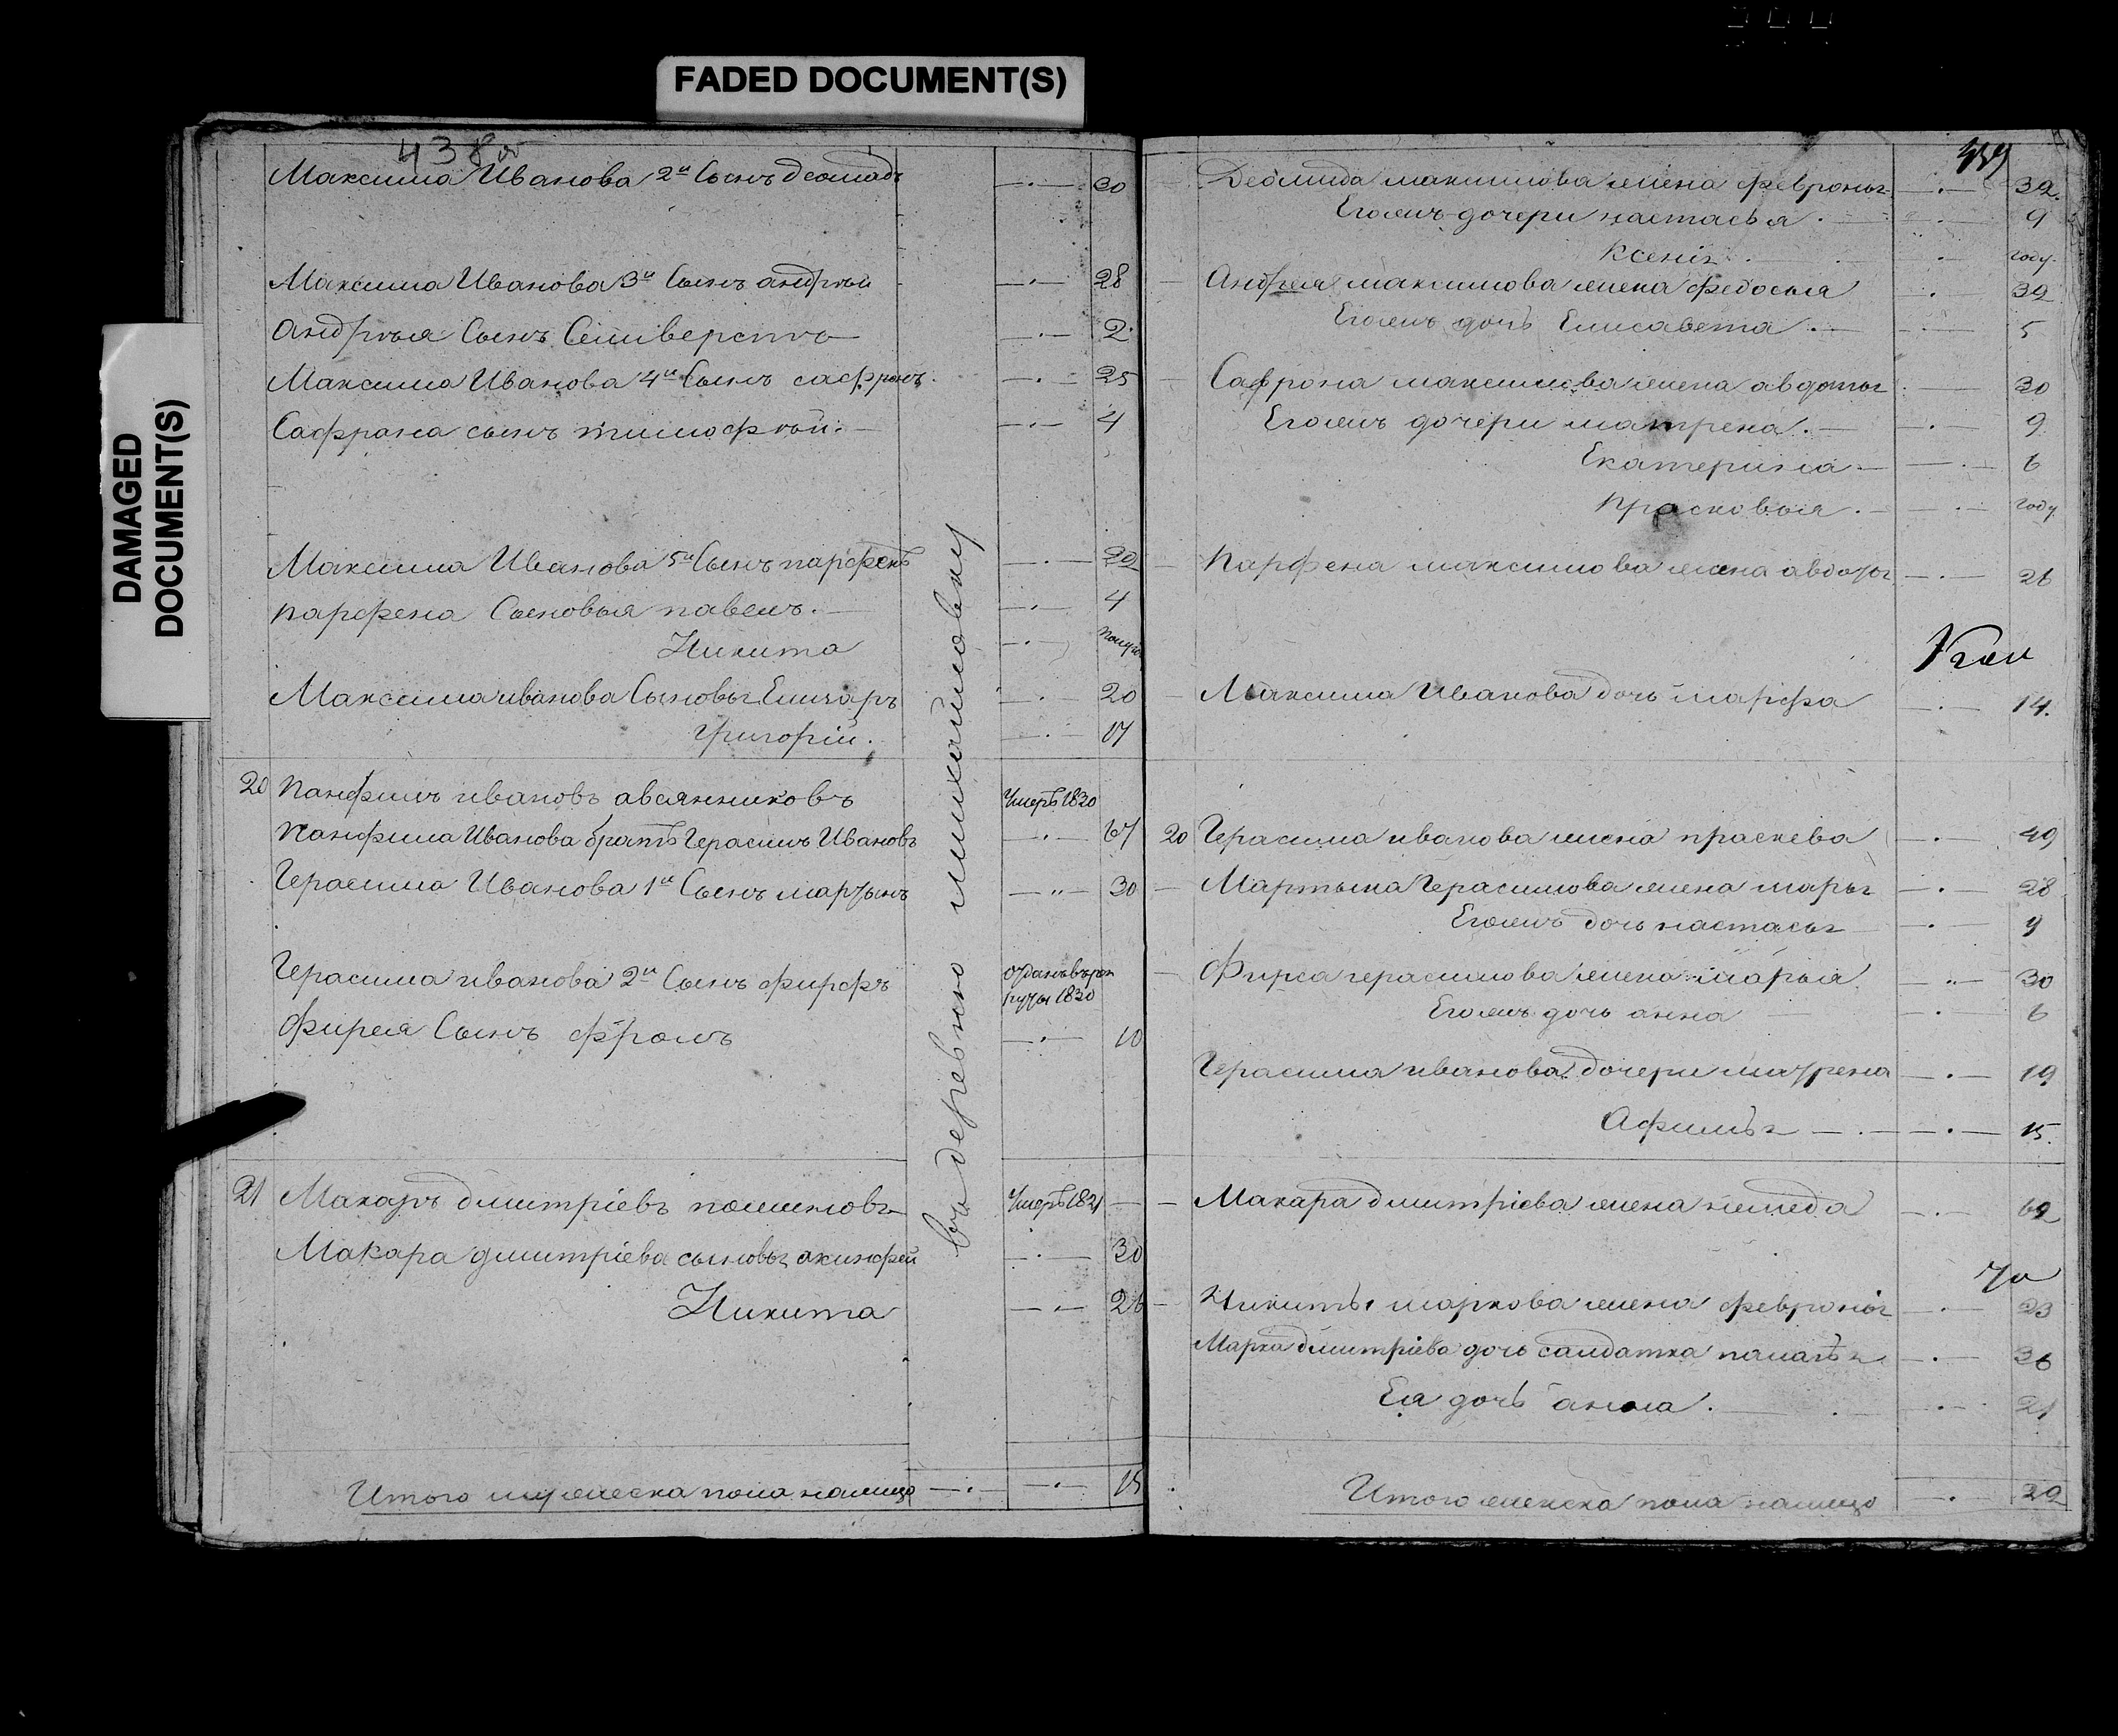 FADED DOCUMENT(S)
DAMAGED
DOCUMENT(S)
438 об
Максима Иванова 2й Сынъ деомидъ — 30
Максима Иванова 3й Сынъ андрѣй — 28
андрѣя Сынъ Селиверстъ — 2
Максима Иванова 4й Сынъ сафронъ — 25
Сафрона сынъ тимофѣй — 4
Максима Иванова 5й Сынъ парфенъ — 22
парфена Сыновья павелъ — 4
Никита — полуго
Максима иванова Сыновья Елизаръ — 20
Григорій — 17
въ деревню михайловку
20 Панфилъ ивановъ авсянниковъ Умеръ 1830
Панфила Иванова братъ Герасимъ Ивановъ — 67
Герасима Иванова 1й Сынъ мартынъ — 30
Герасима иванова 2й Сынъ фирсъ отданъ въ рекруты 1830
Фирса Сынъ фролъ — 10
21 Макаръ дмитріевъ Умеръ 1831 —
Макара дмитріева сыновья акинфей — 30
Никита — 26
Итого мужеска пола налицо — 15
439
Деомида максимова жена февронья — 32
Егожъ дочери настасья — 9
Ксенія — году
Андрея максимова жена федосья — 32
Егожъ дочь Елисавета — 5
Сафрона максимова жена авдотья — 30
Егожъ дочери матрена — 9
Екатерина — 6
прасковья — году
Парфена максимова жена авдотья — 26
Максима Иванова дочь марфа — 14
20 Герасима иванова жена праскева — 49
Мартына Герасимова жена марья — 28
Егожъ дочь настасья — 9
Фирса герасимова жена марья — 30
Егожъ дочь анна — 6
Герасима иванова дочери матрена — 19
Афимья — 15
Макара дмитріева жена — 62
Никиты маркова жена февронія — 23
Марка дмитріева дочь салдатка палагѣя — 36
Ея дочь анна — 21
Итого женска пола налицо — 20